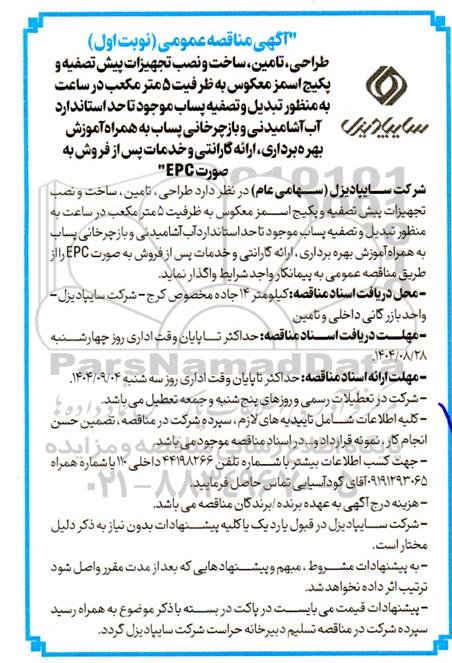 "آگهی مناقصه عمومی (نوبت اول)
طراحی، تامین، ساخت و نصب تجهیزات پیش تصفیه و
پکیج اسمز معکوس به ظرفیت ۵ متر مکعب در ساعت
به منظور تبدیل و تصفیه پساب موجود تا حد استاندارد
آب آشامیدنی و بازچرخانی پساب به همراه آموزش
بهره برداری، ارائه گارانتی و خدمات پس از فروش به
صورت EPC"
سایپا دیزل
شرکت سایپا دیزل (سهامی عام) در نظر دارد طراحی، تامین، ساخت و نصب
تجهیزات پیش تصفیه و پکیج اسمز معکوس به ظرفیت ۵ متر مکعب در ساعت به
منظور تبدیل و تصفیه پساب موجود تا حد استاندارد آب آشامیدنی و بازچرخانی پساب
به همراه آموزش بهره برداری، ارائه گارانتی و خدمات پس از فروش به صورت EPC را از
طریق مناقصه عمومی به پیمانکار واجد شرایط واگذار نماید.
- محل دریافت اسناد مناقصه: کیلومتر ۱۴ جاده مخصوص کرج - شرکت سایپا دیزل -
واحد بازرگانی داخلی و تامین
- مهلت دریافت اسناد مناقصه: حداکثر تا پایان وقت اداری روز چهارشنبه
۱۴۰۴/۰۸/۲۸.
- مهلت ارائه اسناد مناقصه: حداکثر تا پایان وقت اداری روز سه شنبه ۱۴۰۴/۰۹/۰۴.
- شرکت در تعطیلات رسمی و روزهای پنج شنبه و جمعه تعطیل می باشد.
- کلیه اطلاعات شامل تاییدیه های لازم، سپرده شرکت در مناقصه، تضمین حسن
انجام کار، نمونه قرارداد و.. در اسناد مناقصه موجود می باشد.
- جهت کسب اطلاعات بیشتر با شماره تلفن ۴۴۱۹۸۲۶۶ داخلی ۱۱۰ یا شماره همراه
۰۹۱۹۱۲۹۳۰۶۵ آقای گودآسیایی تماس حاصل فرمایید.
- هزینه درج آگهی به عهده برنده / برندگان مناقصه می باشد.
- شرکت سایپا دیزل در قبول یا رد یک یا کلیه پیشنهادات بدون نیاز به ذکر دلیل
مختار است.
- به پیشنهادات مشروط، مبهم و پیشنهادهایی که بعد از مدت مقرر واصل شود
ترتیب اثر داده نخواهد شد.
- پیشنهادات قیمت می بایست در پاکت در بسته با ذکر موضوع به همراه رسید
سپرده شرکت در مناقصه تسلیم دبیرخانه حراست شرکت سایپا دیزل گردد.
ParsNamadData